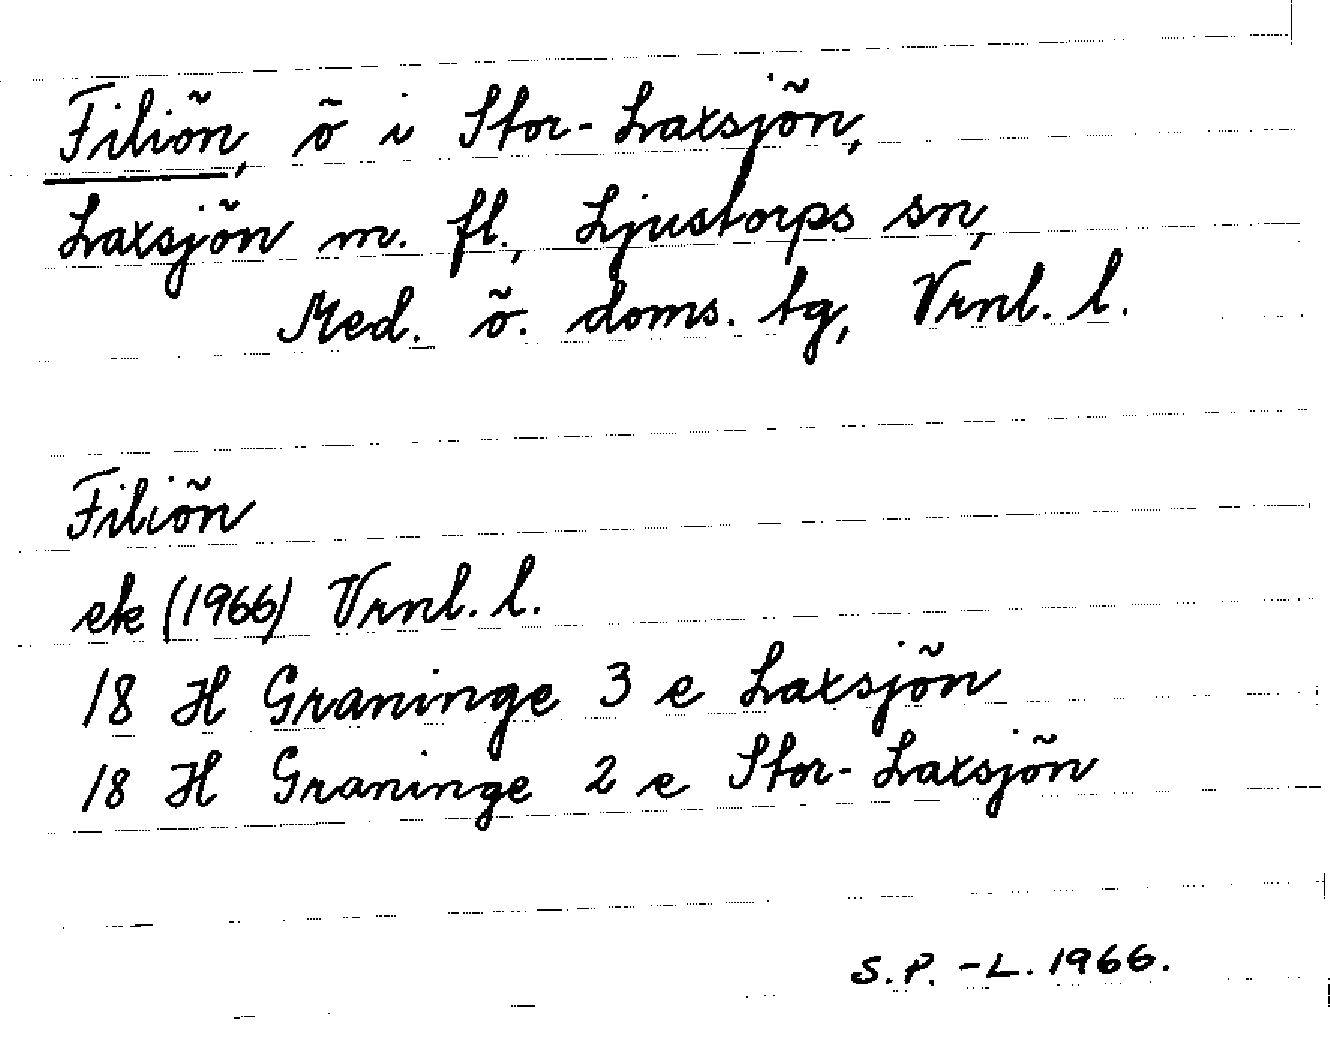 Filiön, ö i Stor-Laxsjön,
Laxsjön m. fl., Ljustorps sn,
Med. ö. doms. tg, Vrnl. l.
Filiön
ek (1966) Vrnl. l.
18 H Graninge 3 e Laxsjön
18 H Graninge 2 e Stor-Laxsjön
S.P.-L. 1966.